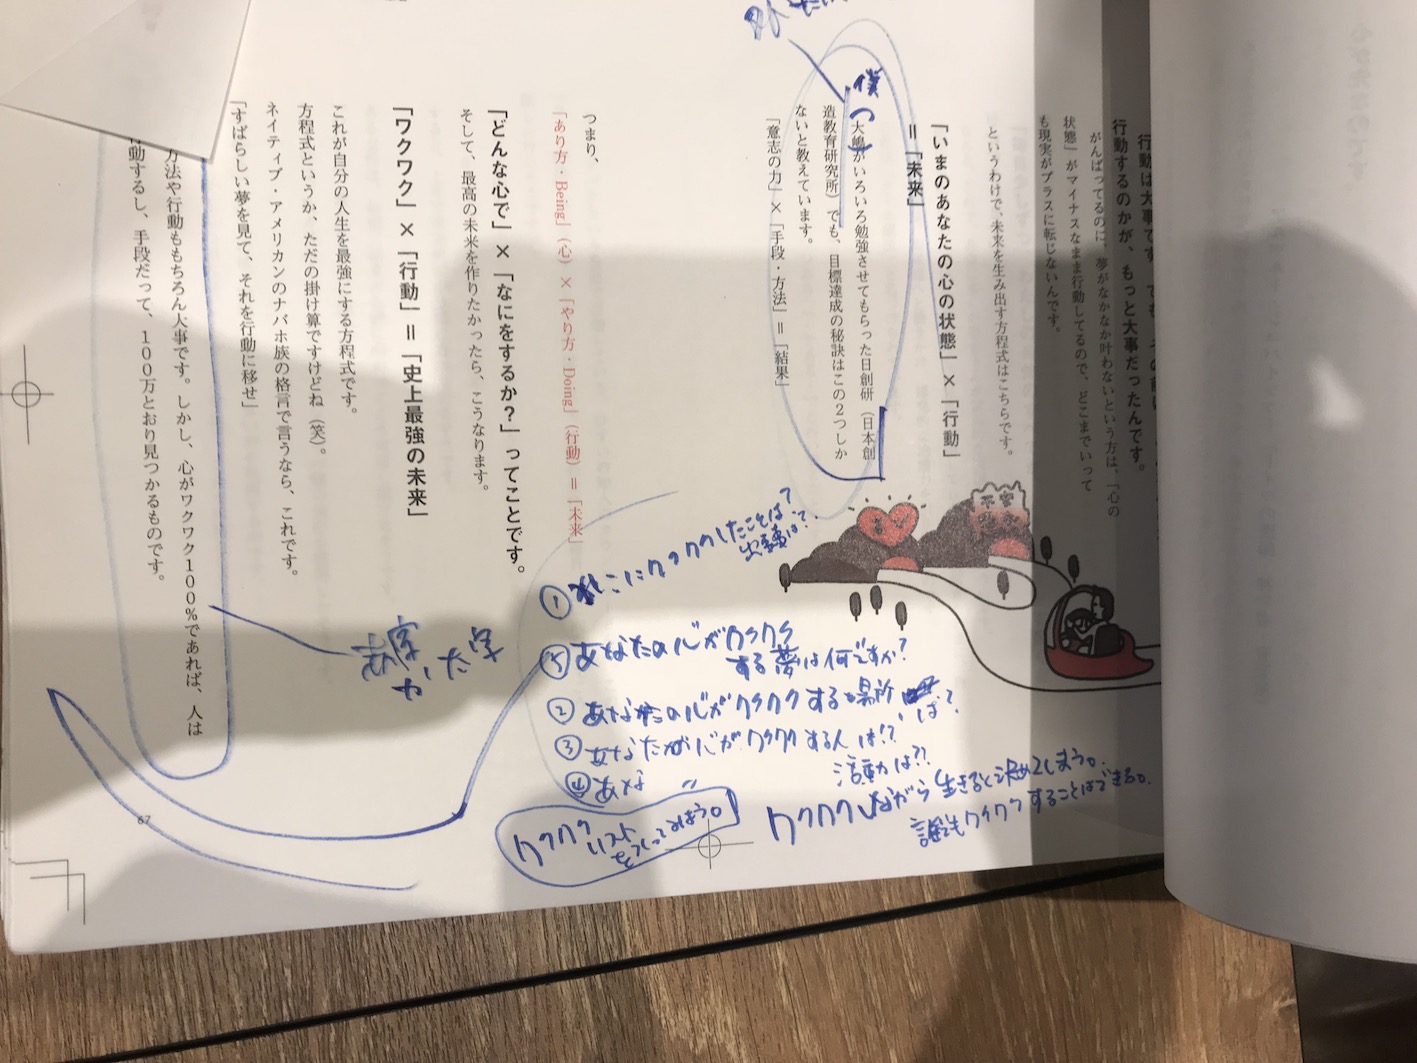 行動は大事です。でも、その前に
行動するのかが、もっと大事だったんです。
がんばってるのに、夢がなかなか叶わないという方は、「心の
状態」がマイナスなまま行動してるので、どこまでいって
も現実がプラスに転じないんです。
というわけで、未来を生み出す方程式はこちらです。
「いまのあなたの心の状態」×「行動」
=「未来」
僕
大嶋がいろいろ勉強させてもらった日創研(日本創
造教育研究所)でも、目標達成の秘訣はこの2つしか
ないと教えています。
「意志の力」×「手段・方法」=「結果」
つまり、
「あり方・Being」(心)×「やり方・Doing」(行動)=「未来」
「どんな心で」×「なにをするか?」ってことです。
そして、最高の未来を作りたかったら、こうなります。
「ワクワク」×「行動」=「史上最強の未来」
これが自分の人生を最強にする方程式です。
方程式というか、ただの掛け算ですけどね(笑)。
ネイティブ・アメリカンのナバホ族の格言で言うなら、これです。
「すばらしい夢を見て、それを行動に移せ」
方法や行動ももちろん大事です。しかし、心がワクワク100%であれば、人は
行動するし、手段だって、100万とおり見つかるものです。
67
不安
よろこび
赤字
か、太字
① にワクワクしたことは?
出来事は?
⑤ あなたの心がワクワク
する夢は何ですか?
② あなたの心がワクワクする場所は?
③ あなたが心がワクワクする人は!?
④ あな 〃 活動は??
ワクワク
リスト
をつくってみよう。
ワクワクしながら生きると決めてしまう。
誰でもワクワクすることはできる。